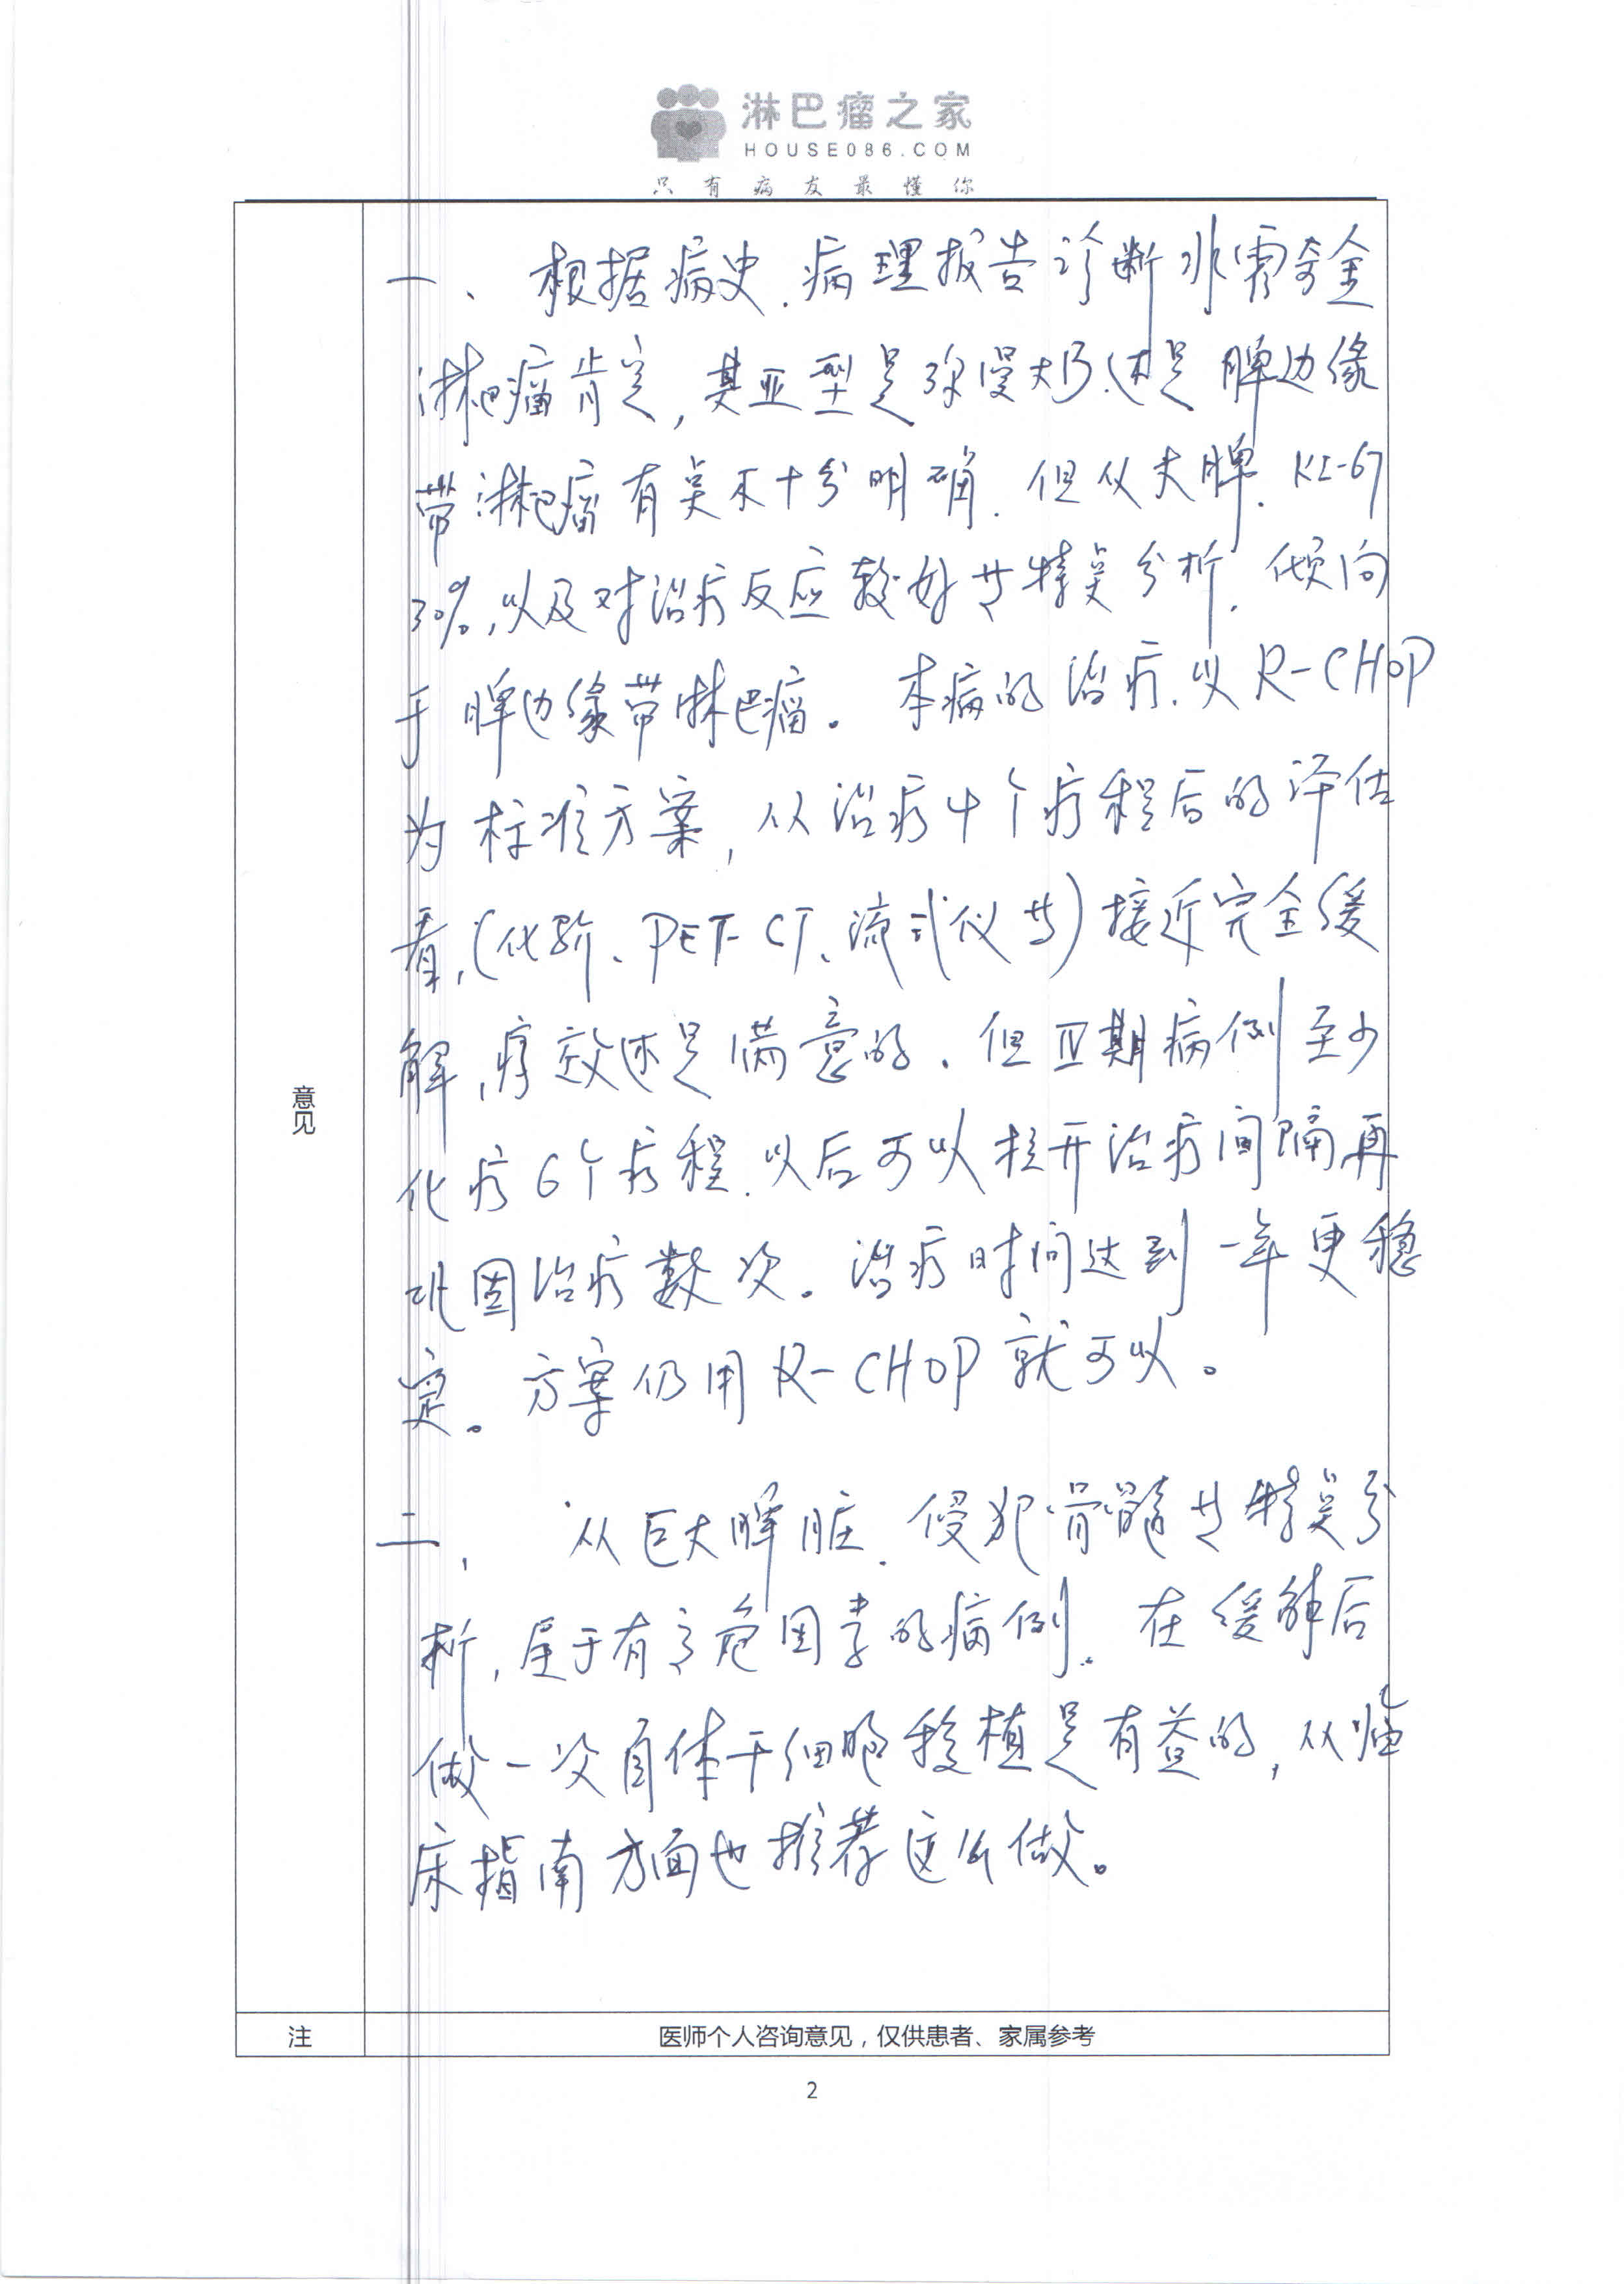 淋巴瘤之家
HOUSE086.COM
只有病友最懂你
一、根据病史、病理报告诊断非霍奇金
淋巴瘤肯定，其亚型是弥漫大B还是脾边缘
带淋巴瘤有点不十分明确．但从大脾、KI-67
30%，以及对治疗反应较好等特点分析，倾向
于脾边缘带淋巴瘤。本病的治疗，以R-CHOP
为标准方案，从治疗4个疗程后的评估
看，(化验、PET-CT、流式仪等)接近完全缓
解，疗效还是满意的．但Ⅳ期病例至少
化疗6个疗程，以后可以拉开治疗间隔再
巩固治疗数次。治疗时间达到一年更稳
定。方案仍用R-CHOP就可以。
二、从巨大脾脏、侵犯骨髓等特点分
析，属于有高危因素的病例．在缓解后
做一次自体干细胞移植是有益的，从临
床指南方面也推荐这么做。
意见
注 医师个人咨询意见，仅供患者、家属参考
2